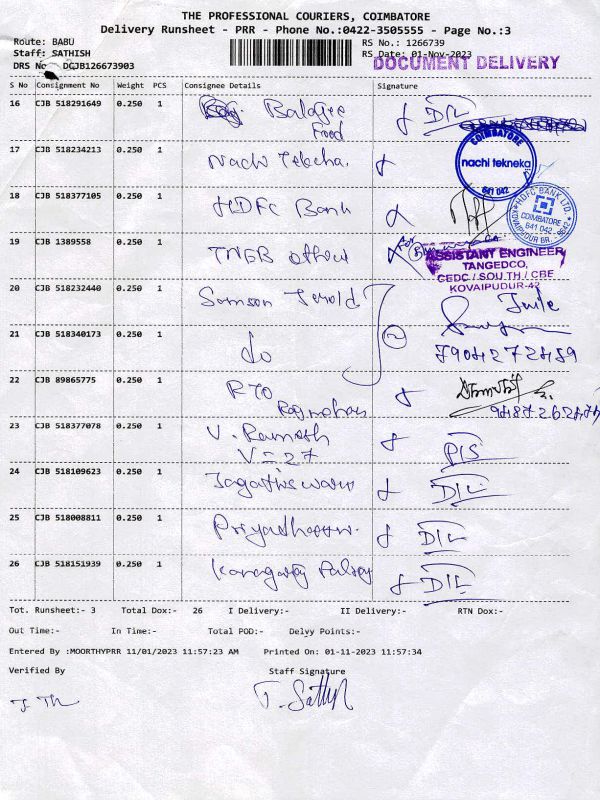 THE PROFESSIONAL COURIERS, COIMBATORE
Delivery Runsheet - PRR - Phone No.:0422-3505555 - Page No.:3
Route: BABU RS No.: 1266739
Staff: SATHISH RS Date: 01-Nov-2023
DRS No DCJB126673903 DOCUMENT DELIVERY
S No Consignment No Weight PCS Consignee Details Signature
16 CJB 518291649 0.250 1 Balajee
Food
17 CJB 518234213 0.250 1 Nachi
COIMBATORE
nachi tekneka
641 042
18 CJB 518377105 0.250 1 HDFC Bank
HDFC BANK LTD.
COIMBATORE
641 042
KOVAIPUDUR BR.
19 CJB 1389558 0.250 1 TNEB
ASSISTANT ENGINEER
TANGEDCO,
CEDC / SOUTH / CBE
KOVAIPUDUR-42
20 CJB 518232440 0.250 1 Samson Jerold
21 CJB 518340173 0.250 1 do
7904272489
22 CJB 89865775 0.250 1 RTO
Rajmohan
23 CJB 518377078 0.250 1 V. Ramesh
V = 27
24 CJB 518109623 0.250 1 Jagathiswari D/L
25 CJB 518008811 0.250 1 D/L
26 CJB 518151939 0.250 1 D/L
Tot. Runsheet:- 3 Total Dox:- 26 I Delivery:- II Delivery:- RTN Dox:-
Out Time:- In Time:- Total POD:- Delvy Points:-
Entered By :MOORTHYPRR 11/01/2023 11:57:23 AM Printed On: 01-11-2023 11:57:34
Verified By Staff Signature